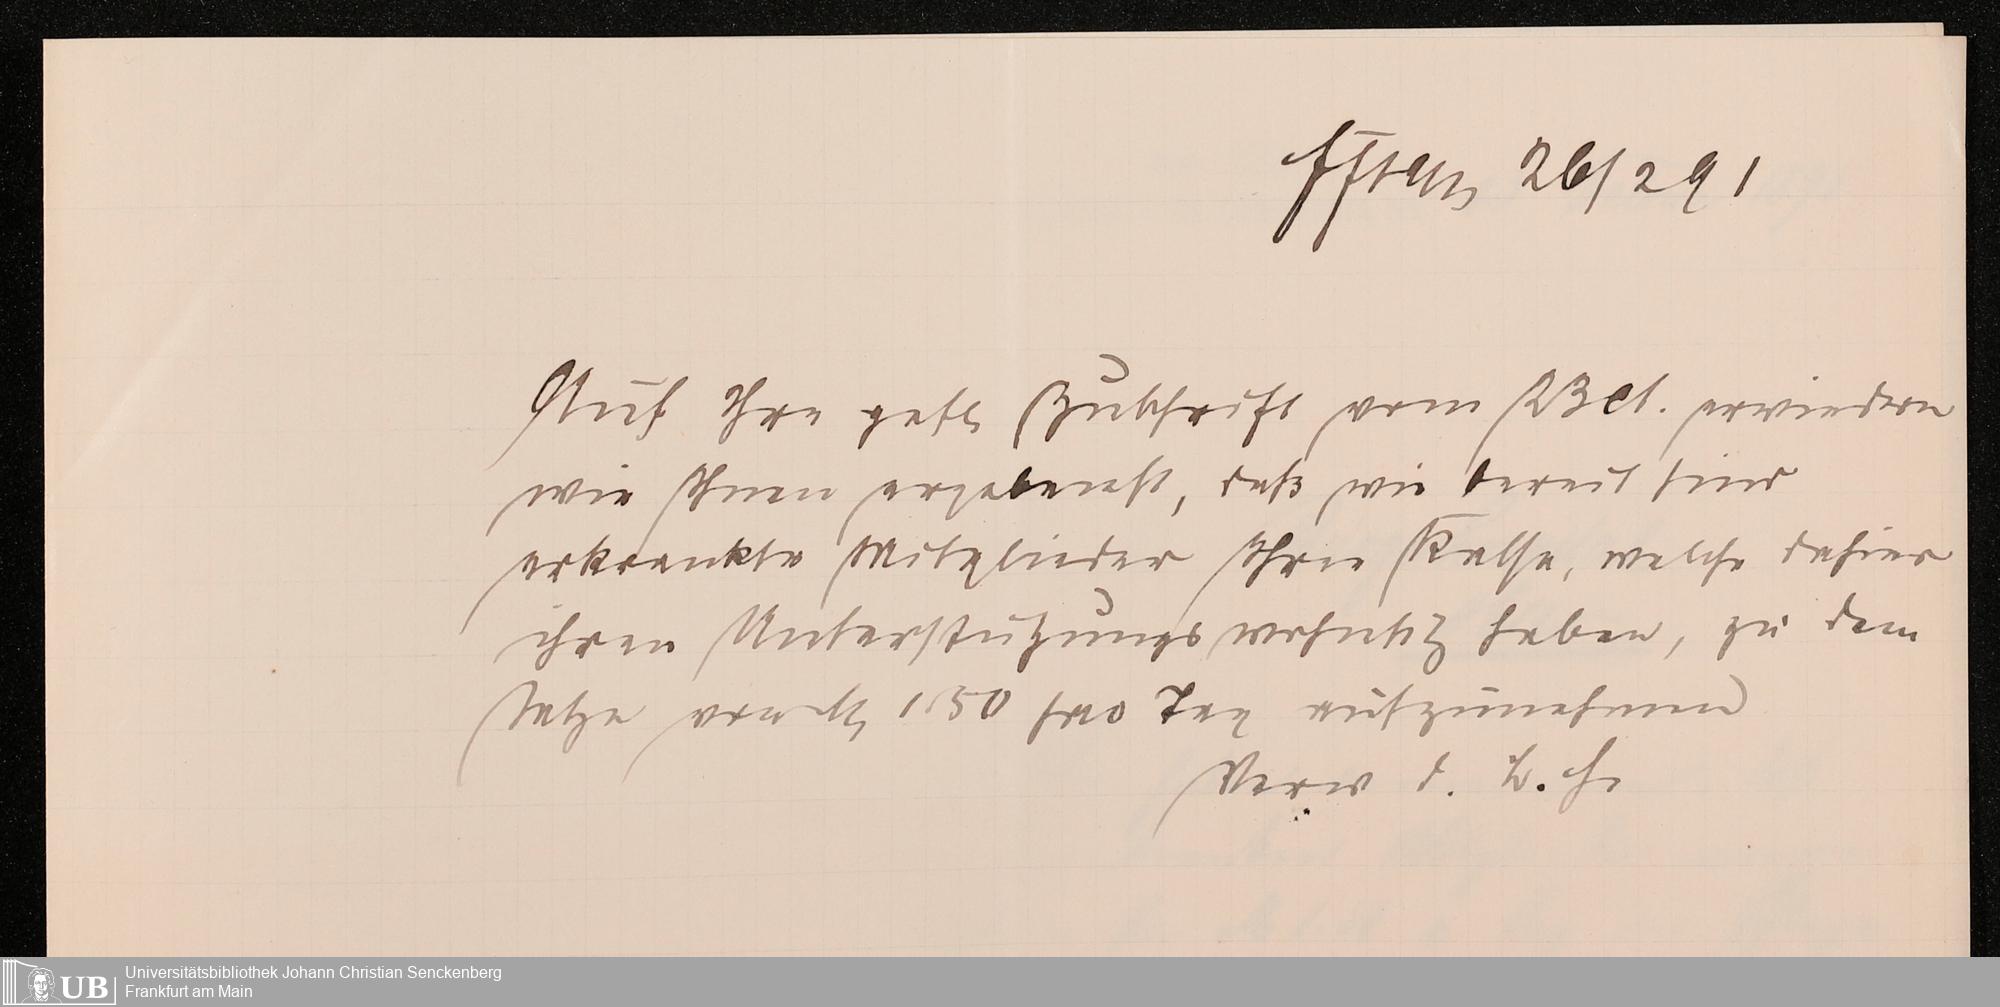 Ffta/M 26/2 91
Auf Ihre gefl. Zuschrift vom 23 ct. erwiedern
wir Ihnen ergebenst, daß wir bereit sind
erkrankte Mitglieder Ihrer Kasse, welche dahier
ihren Unterstützungswohnsitz haben, zu dem
Satze von M 1.50 pro Tag aufzunehmen
Verw d. h. G.
UB
Universitätsbibliothek Johann Christian Senckenberg
Frankfurt am Main